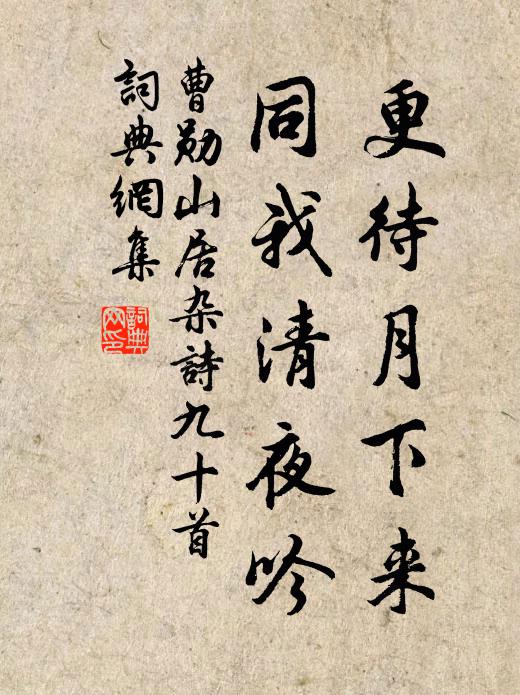 更待月下来
同我清夜吟
曹勛山居杂詩九十首
詞典網集
詞典網印